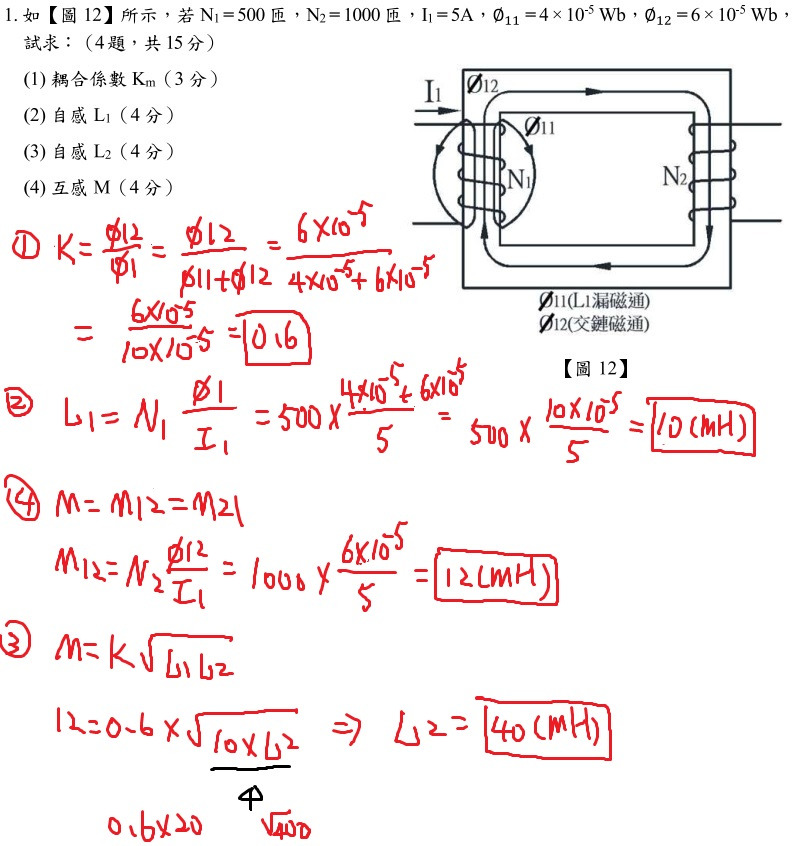 1. 如【圖 12】所示,若 N₁=500 匝,N₂=1000 匝,I₁=5A,Ø₁₁=4×10⁻⁵ Wb,Ø₁₂=6×10⁻⁵ Wb,
試求:(4題,共 15 分)
(1) 耦合係數 Kₘ(3 分)
(2) 自感 L₁(4 分)
(3) 自感 L₂(4 分)
(4) 互感 M(4 分)
I1
Ø12
Ø11
N1
N2
Ø11(L1漏磁通)
Ø12(交鏈磁通)
【圖 12】
① K = ø12/ø1 = ø12/(ø11+ø12) = 6×10⁻⁵/(4×10⁻⁵+6×10⁻⁵)
= 6×10⁻⁵/10×10⁻⁵ = 0.6
② L1 = N₁ ø1/I₁ = 500 × (4×10⁻⁵+6×10⁻⁵)/5 = 500 × 10×10⁻⁵/5 = 10(mH)
④ M = M12 = M21
M12 = N₂ ø12/I₁ = 1000 × 6×10⁻⁵/5 = 12(mH)
③ M = K√(L1L2)
12 = 0.6 × √(10×L2) ⇒ L2 = 40(mH)
0.6×20 √400